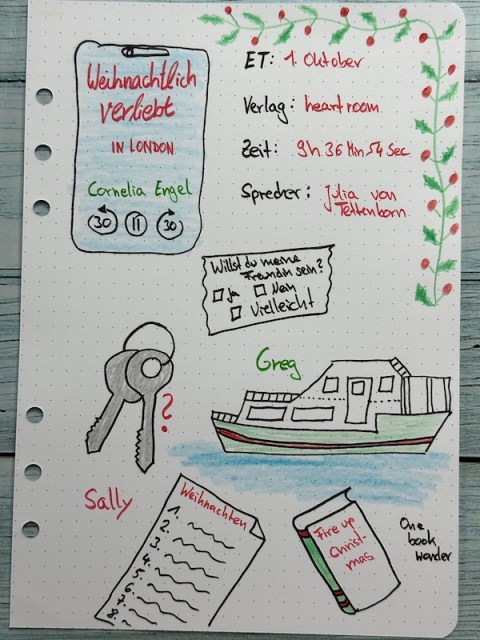 Weihnachtlich
verliebt
IN LONDON
Cornelia Engel
30 30
ET: 1. Oktober
Verlag: heartroom
Zeit: 9h 36 Min 54 Sec
Sprecher: Julia von
Tettenborn
Willst du meine
Freundin sein?
Ja Nein
Vielleicht
?
Greg
Sally
Weihnachten
1.
2.
3.
4.
5.
6.
7.
8.
Fire up
Christ-
mas
One
book
wonder